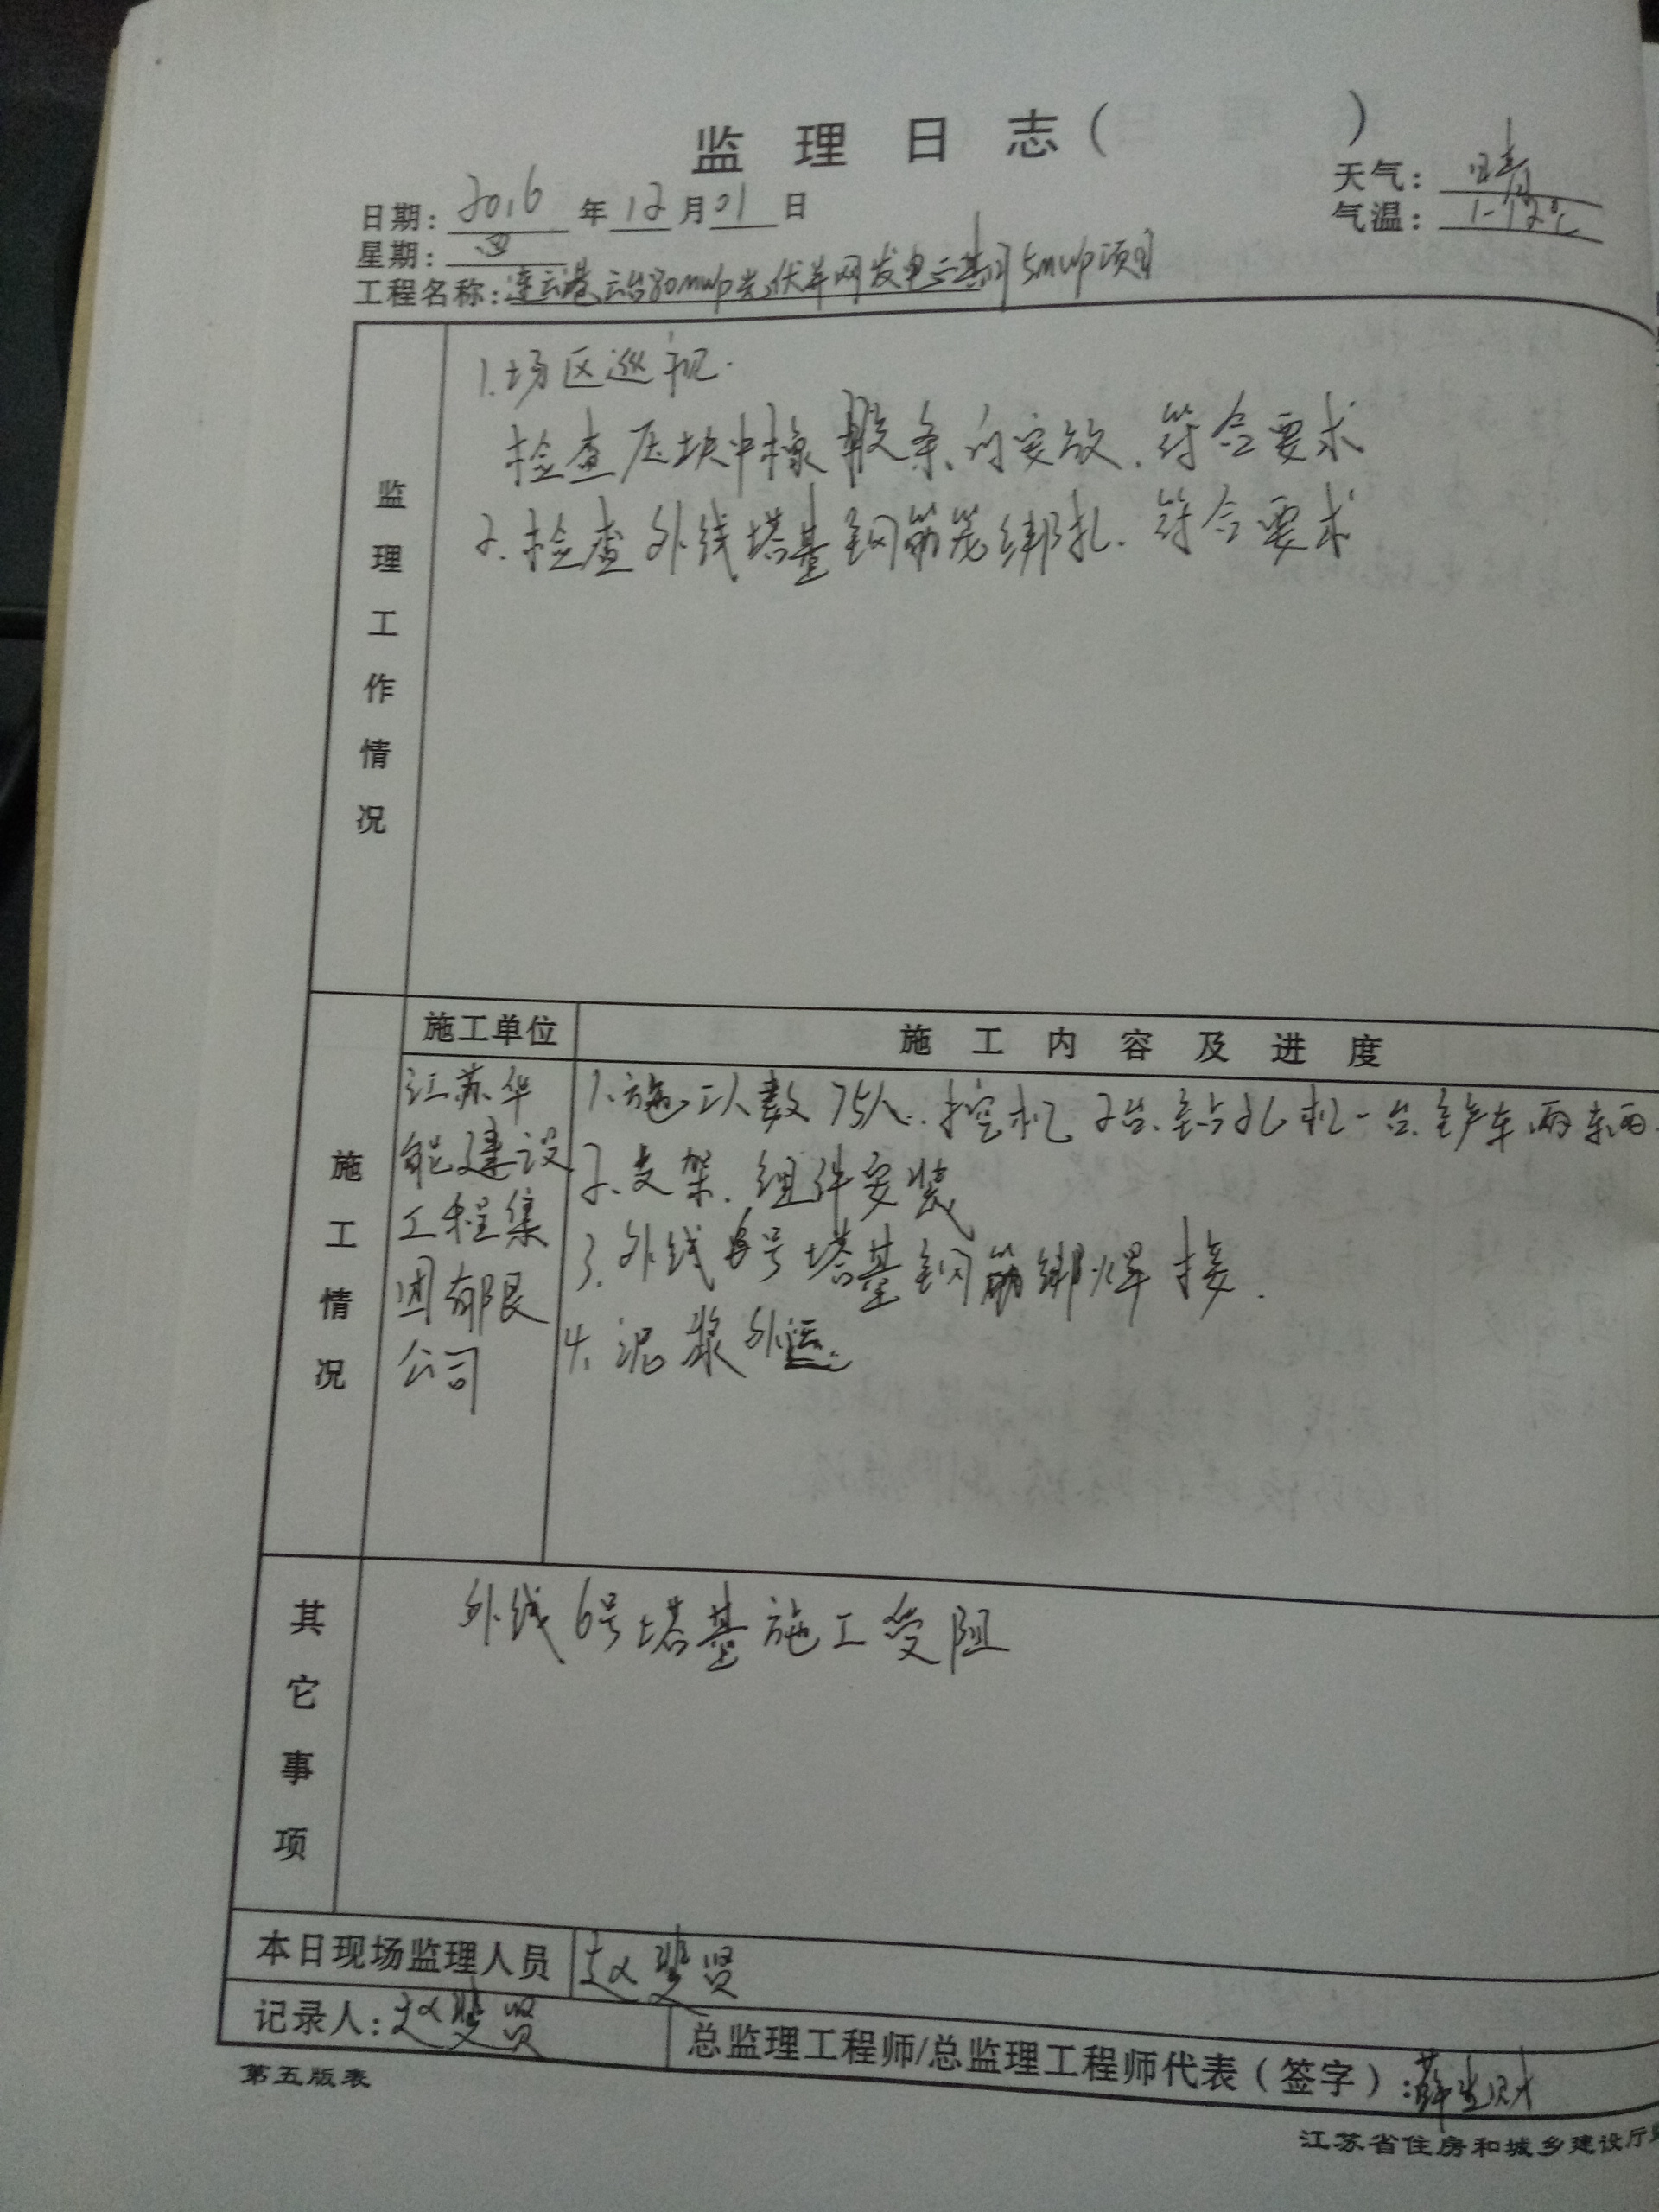 监理日志(      )
日期: 2016 年 12 月 01 日
天气: 晴
星期: 四
气温: 1-12℃
工程名称: 连云港云台80mwp光伏并网发电 5mwp项目
监理工作情况
1.场区巡视.
检查压块中橡胶条的安放.符合要求
2.检查外线塔基钢筋笼绑扎.符合要求
施工情况
施工单位
施工内容及进度
江苏华
能建设
工程集
团有限
公司
1.施工人数75人.挖机2台.钻孔机一台.铲车两
2.支架.组件安装
3.外线6号塔基钢筋绑焊接.
4.泥浆外运.
其它事项
外线6号塔基施工受阻
本日现场监理人员 赵 贤
记录人: 赵 贤
总监理工程师/总监理工程师代表(签字): 薛 财
第五版表
江苏省住房和城乡建设厅